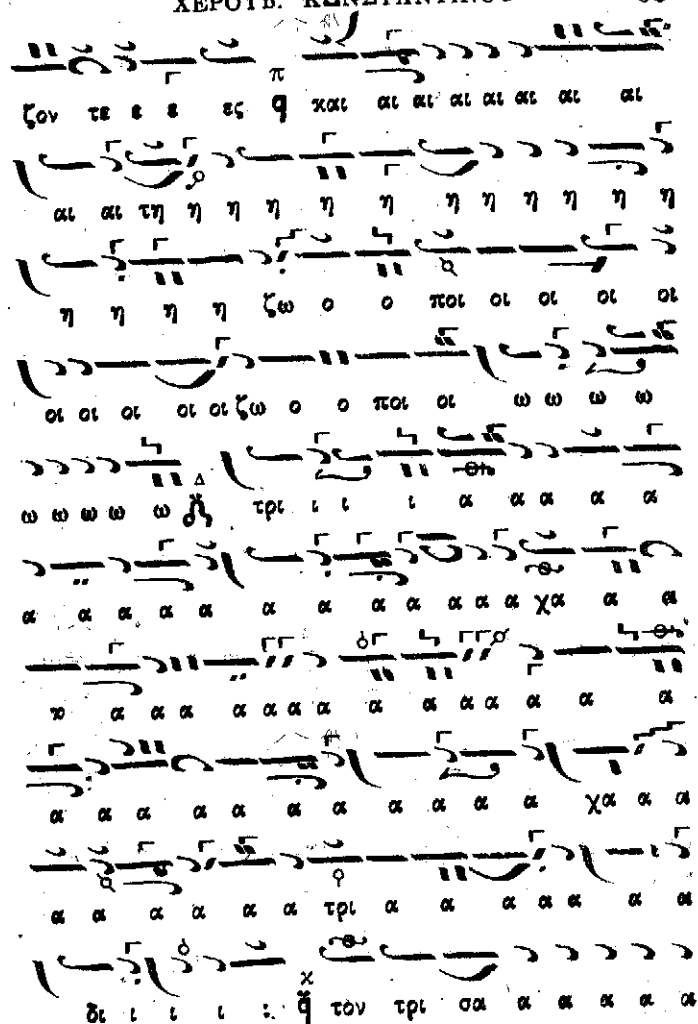 ΧΕΡΟΥΒ. ΚΩΝΣΤΑΝΤΙΝΟΥ
ζον τε ε ε ες π q και αι αι αι αι αι αι αι
αι αι τη η η η η η η η η η η η
η η η η ζω ο ο ποι οι οι οι οι
οι οι οι οι οι ζω ο ο ποι οι ω ω ω ω
ω ω ω ω ω Δ τρι ι ι ι α α α α α
α α α α α α α α α α α α χα α α
α α α α α α α α α α α α α α α
α α α α α α α α α α α α χα α α
α α α α α α τρι α α α α α α α
δι ι ι ι : χ q τον τρι σα α α α α α